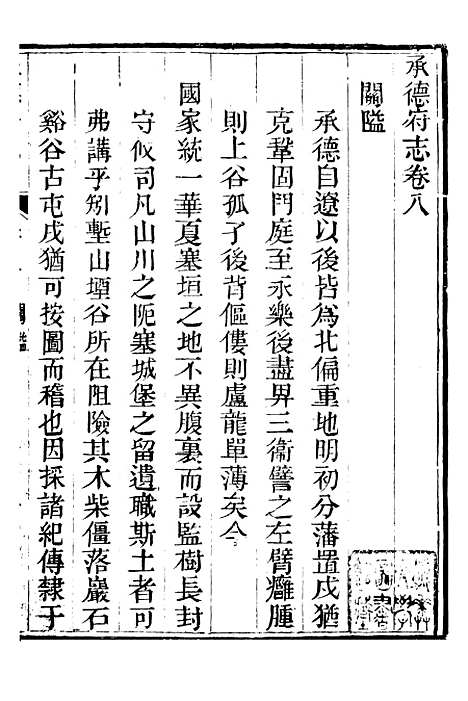 承德府志卷八
關隘
承德自遼以後皆爲北偏重地明初分藩置戍猶
克鞏固門庭至永樂後盡畀三衞譬之左臂癰腫
則上谷孤了後背傴僂則盧龍單薄矣今
國家統一華夏塞垣之地不異腹裏而設監樹長封
守攸司凡山川之阨塞城堡之留遺職斯土者可
弗講乎矧塹山堙谷所在阻險其木柴僵落巖石
谿谷古屯戍猶可按圖而稽也因採諸紀傳隸于